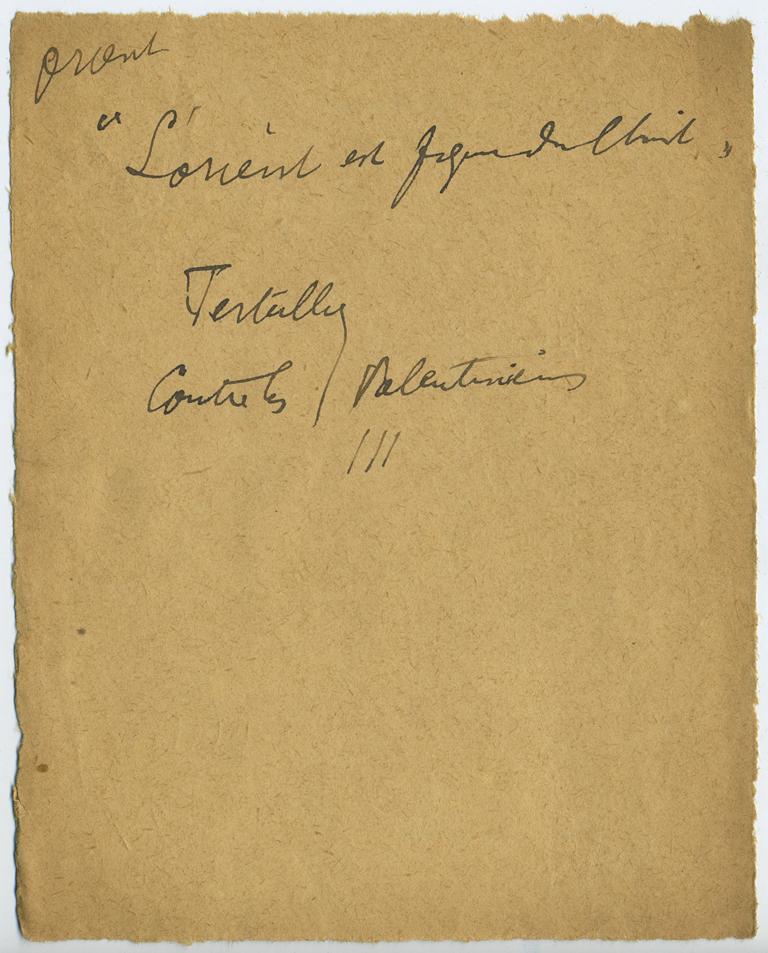 Orient
“ L'orient est figure du Christ „
Tertullien
Contre les Valentiniens
III